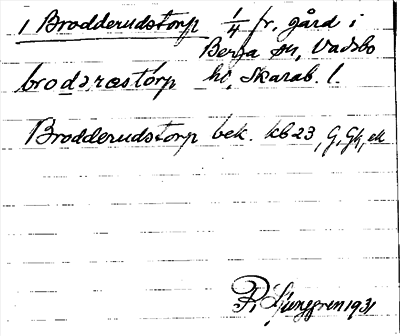 1 Brodderudstorp 1/4 fr. gård i
Berga sn, Vadsbo
brodərəstorp hd, Skarab. l.
Brodderudstorp bek. kb 23, G, Gk, ek
R. Ljunggren 1931